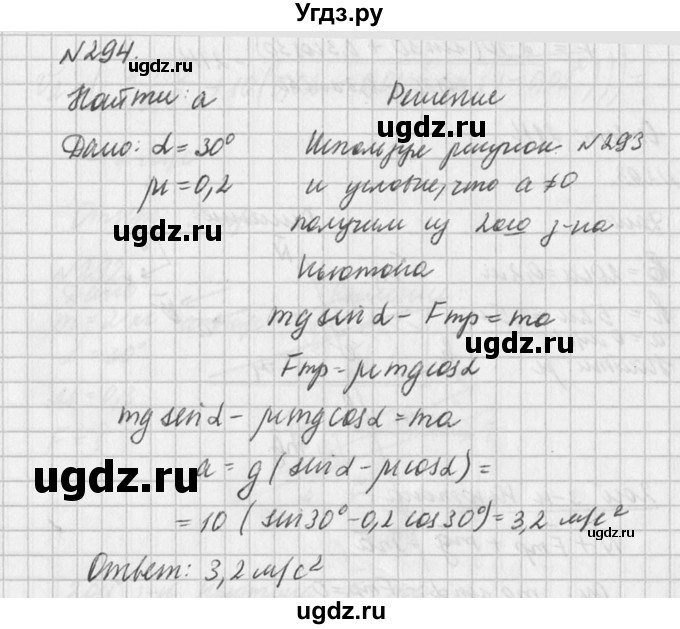 Угдз.ру
№294.
ugdz.ru
Найти: a
Решение
ugdz.ru
Дано: α = 30°
Используя рисунок №293
μ = 0,2
и условие, что a ≠ 0
ugdz.ru
получим из 2ого з-на
Ньютона
mg sin α - Fтр = ma
ugdz.ru
Fтр = μmg cos α
mg sin α - μmg cos α = ma
ugdz.ru
a = g (sin α - μ cos α) =
= 10 (sin 30° - 0,2 cos 30°) = 3,2 м/с²
ugdz.ru
Ответ: 3,2 м/с²
ugdz.ru